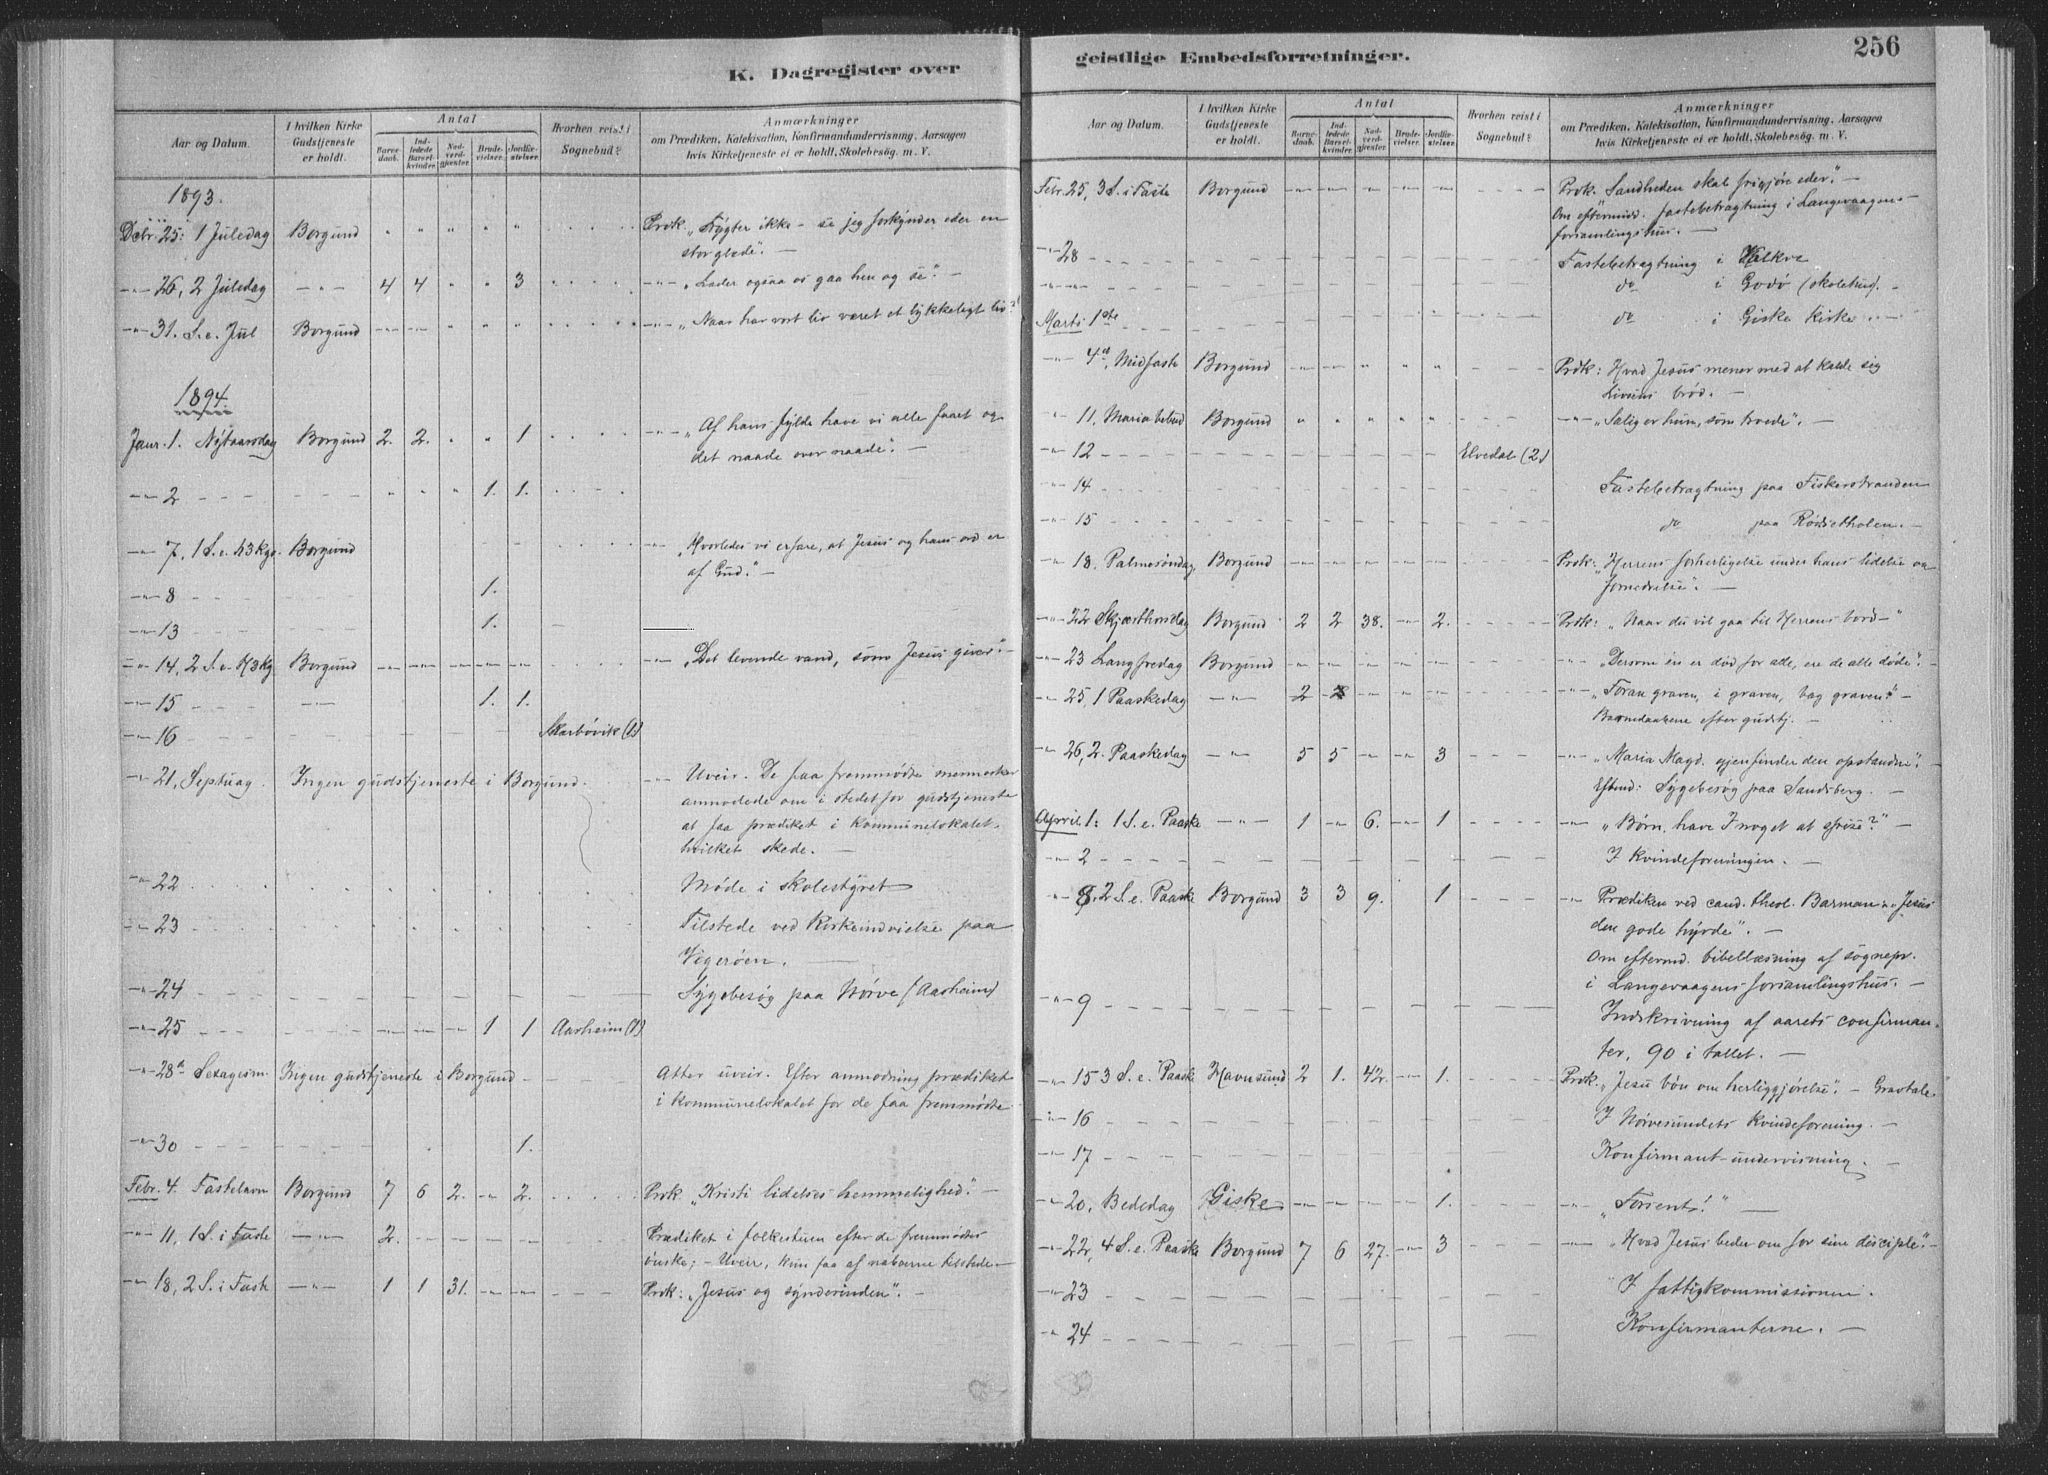 K. Dagregister over
Aar og Datum.
I hvilken Kirke Gudstjeneste er holdt.
Antal
Barnedaab.
Indledede Barselkvinder.
Nadverdgjester.
Brudevielser.
Jordfæstelser.
Hvorhen reist i Sognebud?
Anmærkninger
om Prædiken, Katekisation, Konfirmandundervisning, Aarsagen
hvis Kirketjeneste ei er holdt, Skolebesøg. m. V.
1893.
Decbr. 25: 1 Juledag Borgund " " " " " Prdk. „Frygter ikke – se jeg forkynder eder en
stor glæde". –
-"- 26, 2 Juledag -"- 4 4 " " 3 -"- „Lader ogsaa os gaa hen og se". –
-"- 31. S. e. Jul Borgund " " " " " -"- „Naar har vort liv været et lykkeligt liv?"
1894.
Janr. 1. Nytaarsdag Borgund 2. 2. " " 1 -"- „Af hans fylde have vi alle faaet og
det naade over naade". –
-"- 2 " " " 1. 1.
-"- 7, 1 S. e. H3kgs. Borgund -"- „Hvorledes vi erfare, at Jesus og hans ord er
af Gud". –
-"- 8 1.
-"- 13 1.
-"- 14, 2 S. e. H3kg Borgund -"- „Det levende vand, som Jesus giver". –
-"- 15 -"- 1. 1.
-"- 16 Skarbövik (1)
-"- 21, Septuag. Ingen gudstjeneste i Borgund. -"- Uveir. De faa fremmødte mennesker
anmodede om i stedet for gudstjeneste
at faa prædiket i kommunelokalet,
hvilket skede. –
-"- 22 Møde i skolestyret
-"- 23 Tilstede ved Kirkeindvielse paa
Vigerøen. –
-"- 24 Sygebesøg paa Nörve (Aarheim)
-"- 25 1 1 Aarheim (1)
-"- 28de Sexagesm. Ingen gudstjeneste i Borgund Atter uveir. Efter anmodning prædiket
i kommunelokalet for de faa fremmødte
-"- 30 1.
Febr. 4. Fastelavn Borgund 7 6 2. -"- 2. Prdk. „Kristi lidelses hemmelighed". –
-"- 11, 1 S. i Faste -"- 2. Prædiket i folkestuen efter de fremmødtes
önske; – Uveir, kun faa af naboerne tilstede –
-"- 18, 2 S. i Fast. -"- 1 1 31. -"- -"- Prdk: „Jesus og synderinden". –
geistlige Embedsforretninger.
256
Aar og Datum.
I hvilken Kirke Gudstjeneste er holdt.
Antal
Barnedaab.
Indledede Barselkvinder.
Nadverdgjester.
Brudevielser.
Jordfæstelser.
Hvorhen reist i Sognebud?
Anmærkninger
om Prædiken, Katekisation, Konfirmandundervisning, Aarsagen
hvis Kirketjeneste ei er holdt, Skolebesøg. m. V.
Febr. 25, 3 S. i Faste Borgund Prdk. Sandheden skal frigjøre eder".
Om eftermidd. fastebetragtning i Langevaagens
forsamlingshus. –
-"- 28 Fastebetragtning i Valkve
-"- -"- do i Godø (skolehus). –
Marts 1ste do i Giske kirke. –
-"- 4de, Midfaste Borgund Prdk: Hvad Jesus mener med at kalde sig
Livsens brød. –
-"- 11, Maria bebud Borgund " " " " " -"- „Salig er hun, som troede". –
-"- 12 Elvedal (2)
-"- 14 Fastebetragtning paa Fiskerstranden
-"- 15 do paa Rödsetholen. –
-"- 18. Palmesöndag Borgund Prdk: „Herrens forherligelse under hans lidelse og
fornedrelse". –
-"- 22 Skjærthorsdag Borgund 2 2 38. -"- 2. Prdk: „Naar du vil gaa til Herrens bord –"
-"- 23 Langfredag Borgund -"- „Dersom én er död for alle, ere de alle døde". –
-"- 25, 1 Paaskedag -"- 2 -"- „Foran graven, i graven, bag graven". –
Barnedaabene efter gudstj. –
-"- 26, 2. Paaskedag -"- 5 5 -"- -"- 3 -"- „Maria Magd. gjenfinder den opstandne".
Eftmd: Sygebesøg paa Sandsberg. –
April. 1: 1 S. e. Paaske -"- 1 -"- 6. -"- 1 -"- „Børn, have I noget at spise?" –
-"- 2 I kvindeforeningen. –
-"- 8, 2 S. e. Paaske Borgund 3 3 9. 1 -"- Prædiken ved cand. theol. Barman: „Jesus
den gode hyrde". –
Om eftermd. bibellæsning af sognepr.
i Langevaagens forsamlingshus. –
-"- 9 Indskrivning af aarets confirman-
ter, 90 i tallet. –
-"- 15 3 S. e. Paaske Havnsund 2 1. 42. -"- 1. Prdk. „Jesu bön om herliggjørelse". – Gravtale.
-"- 16 I Nörvesundets kvindeforening. –
-"- 17 Konfirmant-undervisning. –
-"- 20, Bededag Giske 1. -"- „Forsent!" –
-"- 22, 4 S. e. Paaske Borgund 7 6 27. -"- 3 -"- „Hvad Jesus beder om for sine disciple". –
-"- 23 I fattigkommissionen. –
-"- 24 Konfirmanterne. –